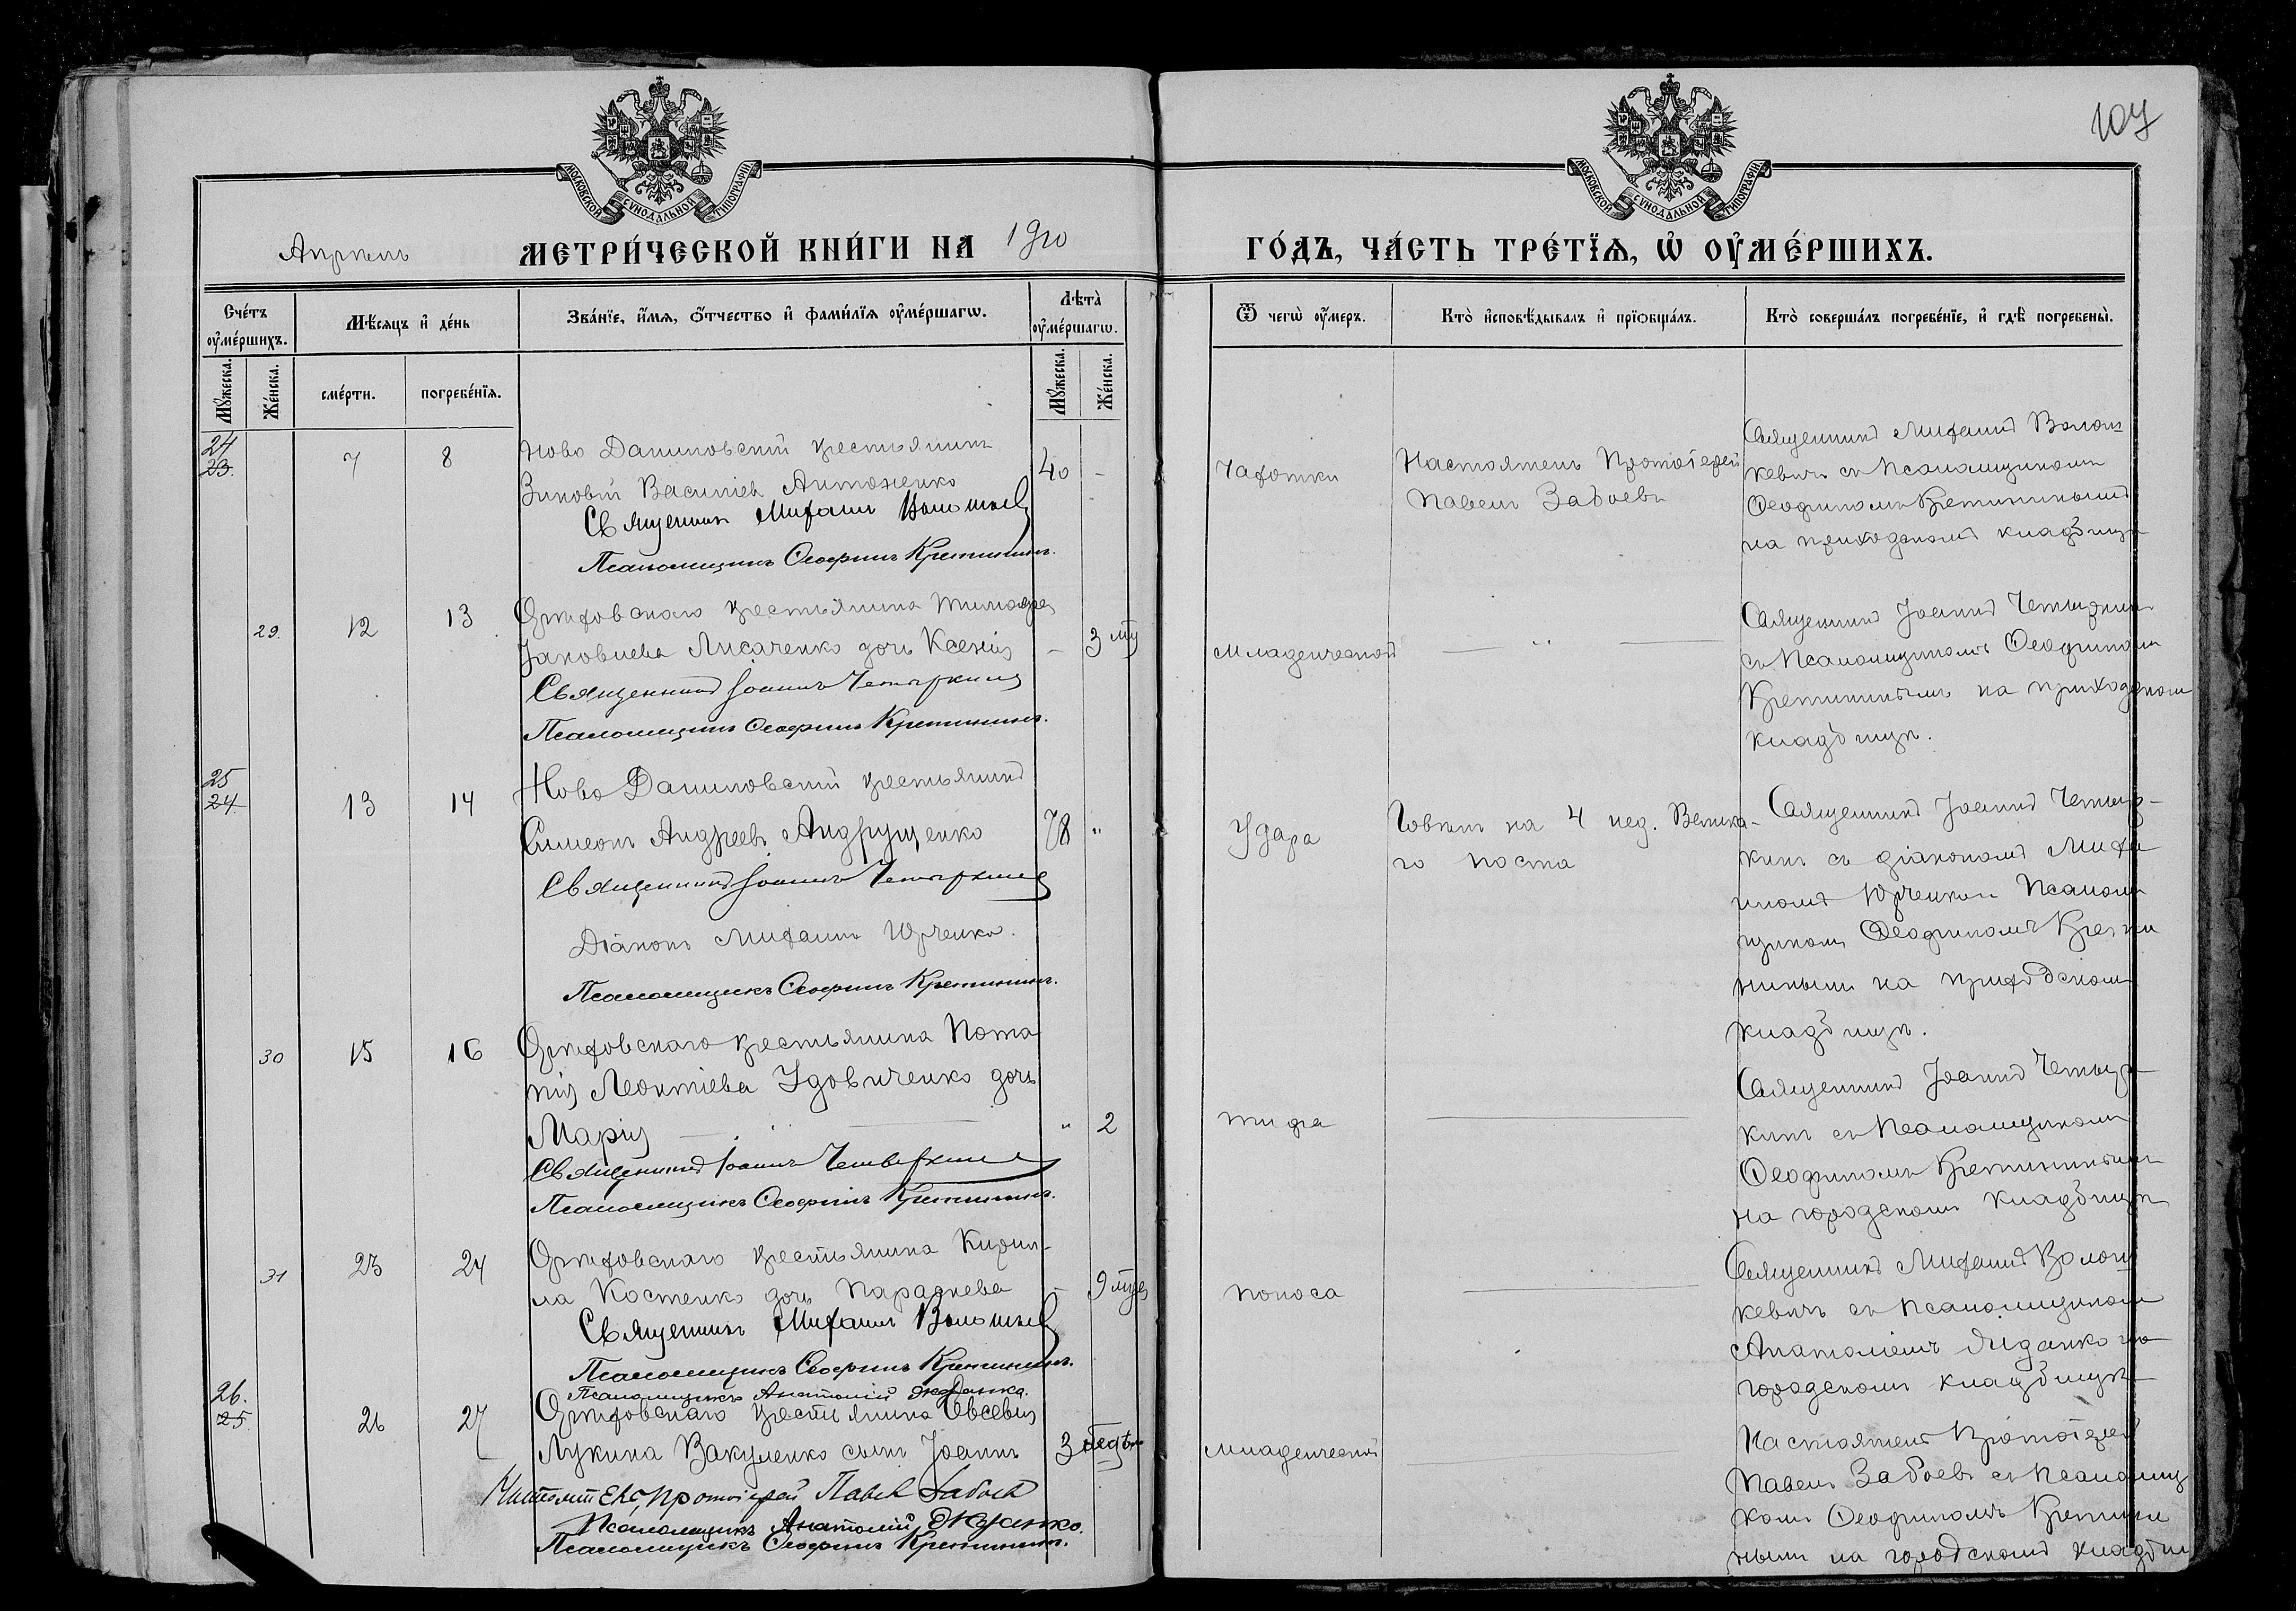 107
МОСКОВСКОЙ СУНОДАЛЬНОЙ ТИПОГРАФИ
МОСКОВСКОЙ СУНОДАЛЬНОЙ ТИПОГРАФИ
Апрель МЕТРИ́ЧЕСКОЙ КНИ́ГИ НА 1910
ГО́ДЪ, ЧА́СТЬ ТРЕ́ТЇѦ, Ѡ҆ ОУ҆МЕ́РШИХЪ.
Сче́тъ оу҆ме́ршихъ.
Мѣ́сяцъ и҆ де́нь
Зва́нїе, и҆́мѧ, ѻ҆́тчество и҆ фами́лїѧ оу҆ме́ршагѡ.
Лѣта̀ оу҆ме́ршагѡ.
Ѿ чегѡ̀ оу҆́меръ.
Кто̀ и҆сповѣ́дывалъ и҆ прїѡбща́лъ.
Кто̀ соверша́лъ погребе́нїе, и҆ гдѣ̀ погребены̀.
Мꙋ́жеска.
Же́нска.
сме́рти.
погребе́нїѧ.
Мꙋ́жеска.
Же́нска.
24
23.
7
8
Ново Даниловскій крестьянинъ
Зиновій Василіев Антоненко
Священникъ Михаилъ
Псаломщикъ Феофилъ Кретининъ.
40
–
Чахотки
Настоятель Протоіерей
Павелъ Забоевъ
Священникъ Михаилъ Волош-
кевичъ съ Псаломщикомъ
Феофиломъ Кретининымъ
на приходскомъ кладбищѣ
29.
12
13
Орѣховскаго крестьянина Тимофея
Іаковлева Лисаченко дочь Ксенія
Священникъ Іоаннъ Четыркинъ
Псаломщикъ Феофилъ Кретининъ.
–
3 мц
Младенческой
— " —
Священникъ Іоаннъ Четыркинъ
съ Псаломщикомъ Феофиломъ
Кретининымъ на приходскомъ
кладбищѣ.
25
24.
13
14
Ново Даниловскій крестьянинъ
Симеонъ Андреевъ Андрущенко
Священникъ Іоаннъ Четыркинъ
Діаконъ Михаилъ Юрченко.
Псаломщикъ Феофилъ Кретининъ.
78
"
Удара
Говѣлъ на 4 нед. Велика-
го поста
Священникъ Іоаннъ Четыр-
кинъ съ діакономъ Миха
иломъ Юрченко и Псалом
щикомъ Феофиломъ Крети
нинымъ на приходскомъ
кладбищѣ.
30
15
16
Орѣховскаго крестьянина Пота
пія Леонтіева Удовиченко дочь
Марія
Священникъ Іоаннъ Четыркинъ
Псаломщикъ Феофилъ Кретининъ.
"
2
тифа
Священникъ Іоаннъ Четыр-
кинъ съ Псаломщикомъ
Феофиломъ Кретининымъ
на городскомъ кладбищѣ
31
23
24
Орѣховскаго крестьянина Кирил-
ла Костенко дочь Параскева
Священникъ Михаилъ
Псаломщикъ Феофилъ Кретининъ.
Псаломщикъ Анатолій
–
9 мцев
поноса
Священникъ Михаилъ Волош
кевичъ съ Псаломщикомъ
Анатоліемъ на
городскомъ кладбищѣ
26.
25.
26
27
Орѣховскаго крестьянина Евсевія
Лукина Вакуленко сынъ Іоаннъ
Протоіерей Павел Забоев
Псаломщикъ Анатолій
Псаломщикъ Феофилъ Кретининъ.
3 недѣли
Младенческой
Настоятель Протоіерей
Павелъ Забоевъ съ Псаломщ
комъ Феофиломъ Кретини
нымъ на городскомъ кладбищ